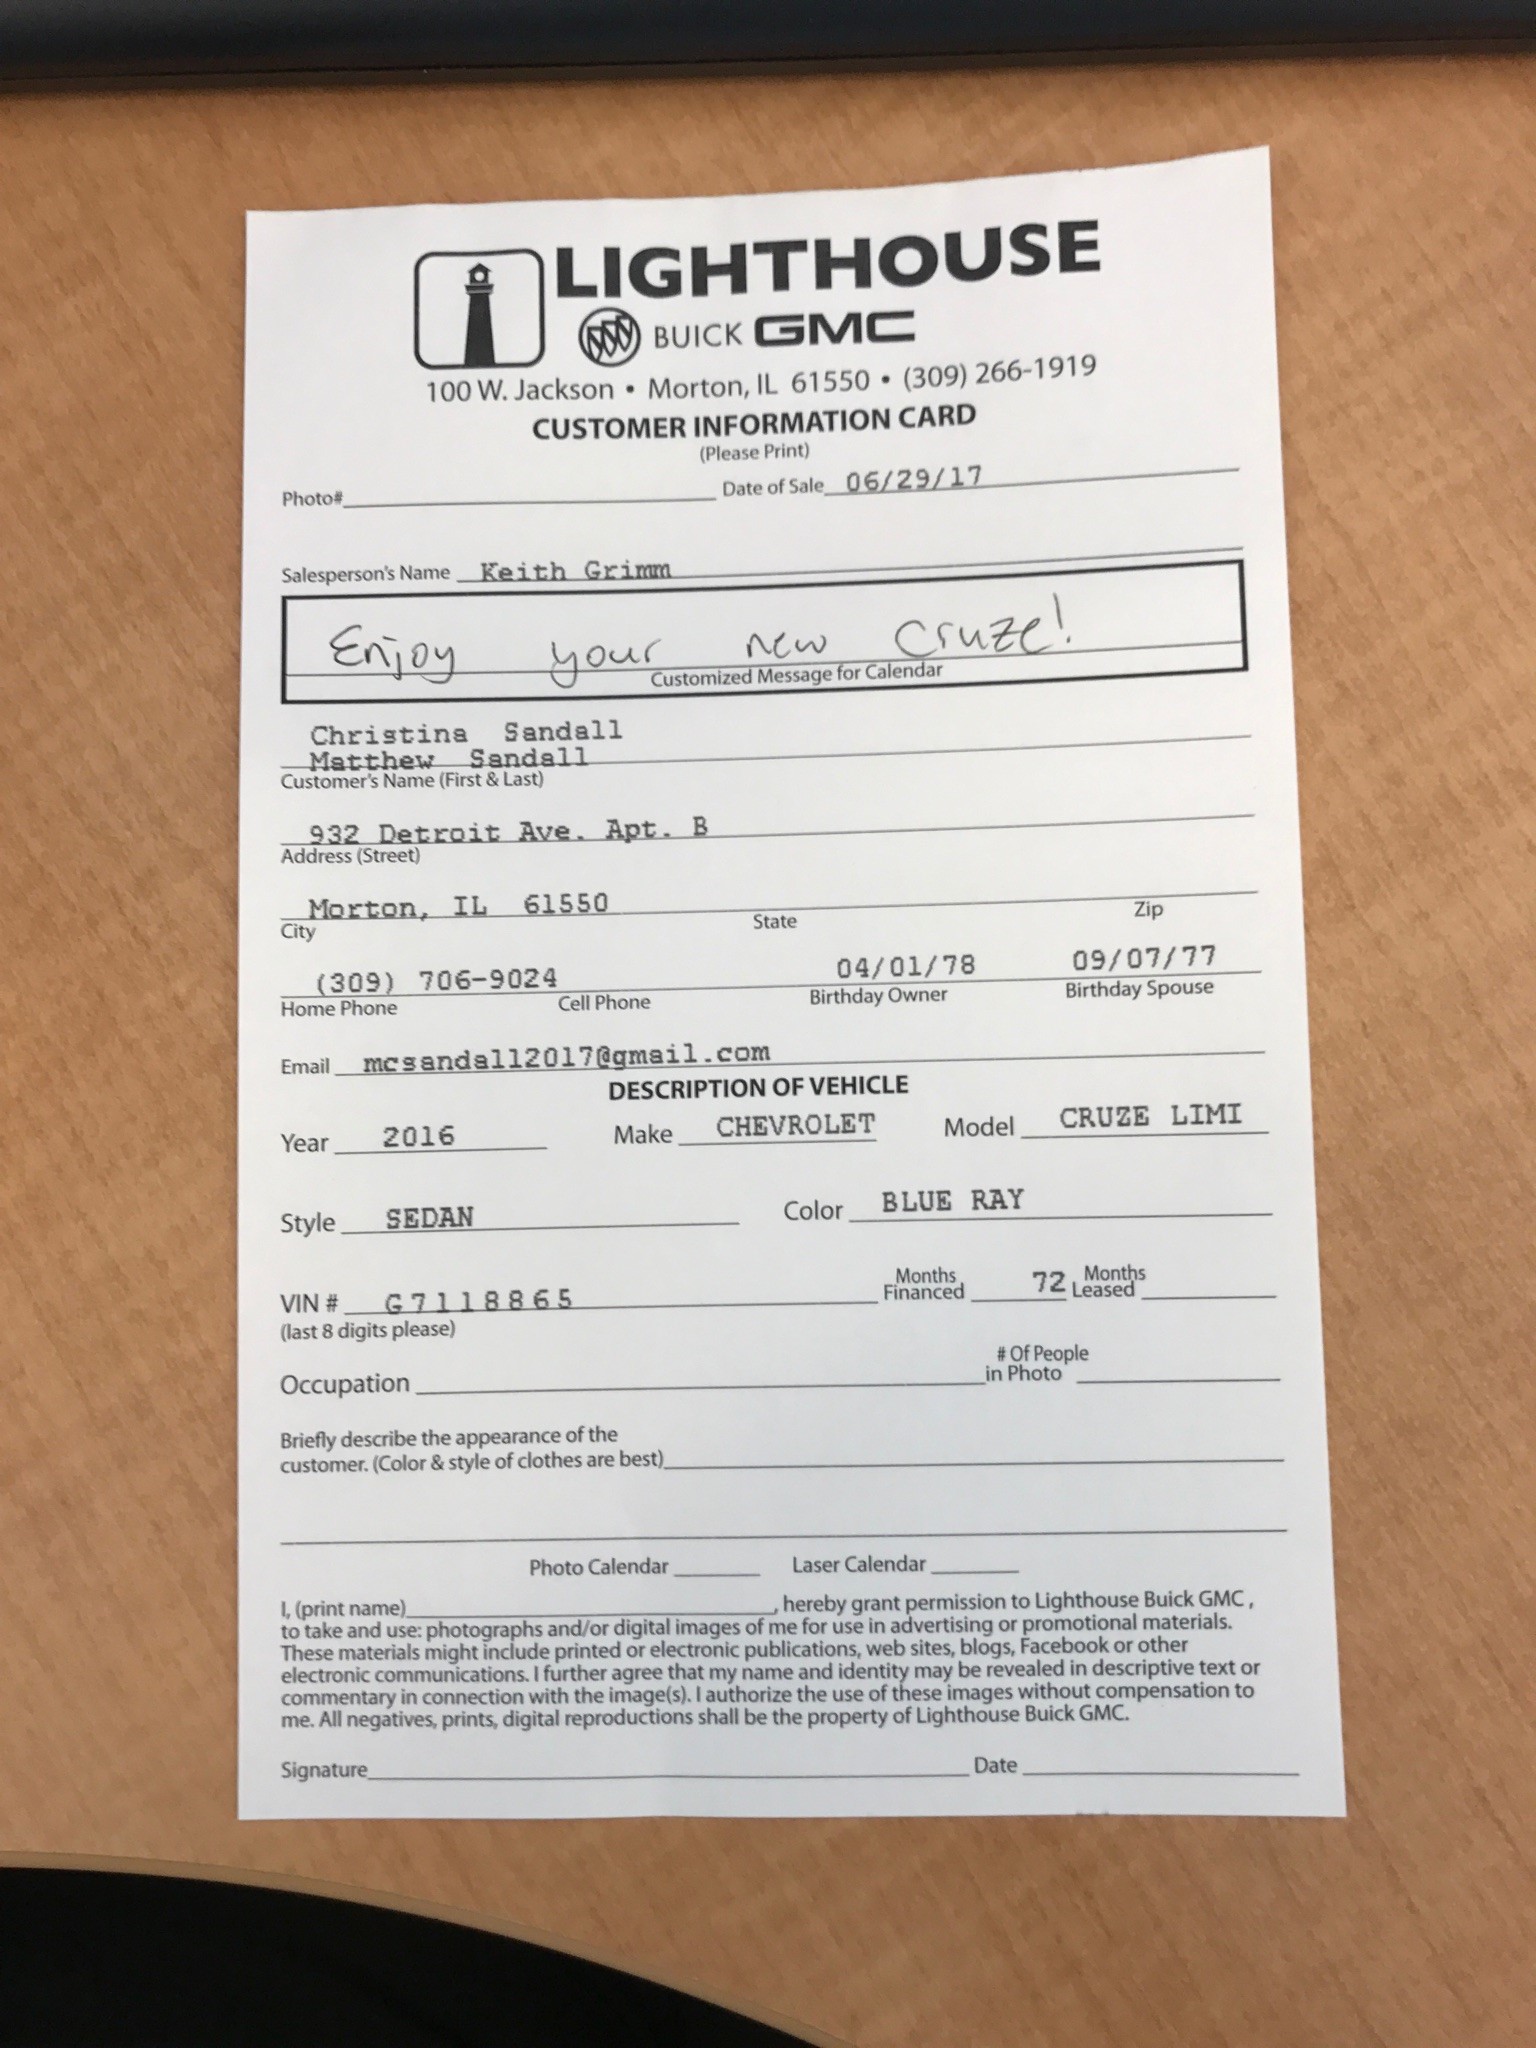 LIGHTHOUSE
BUICK GMC
100 W. Jackson • Morton, IL 61550 • (309) 266-1919
CUSTOMER INFORMATION CARD
(Please Print)
Photo# Date of Sale 06/29/17
Salesperson's Name Keith Grimm
Enjoy your new Cruze!
Customized Message for Calendar
Christina Sandall
Matthew Sandall
Customer's Name (First & Last)
932 Detroit Ave. Apt. B
Address (Street)
Morton, IL 61550
City State Zip
(309) 706-9024 04/01/78 09/07/77
Home Phone Cell Phone Birthday Owner Birthday Spouse
Email mcsandall2017@gmail.com
DESCRIPTION OF VEHICLE
Year 2016 Make CHEVROLET Model CRUZE LIMI
Style SEDAN Color BLUE RAY
VIN # G7118865 Months Financed 72 Months Leased
(last 8 digits please)
Occupation # Of People in Photo
Briefly describe the appearance of the
customer. (Color & style of clothes are best)
Photo Calendar Laser Calendar
I, (print name) , hereby grant permission to Lighthouse Buick GMC ,
to take and use: photographs and/or digital images of me for use in advertising or promotional materials.
These materials might include printed or electronic publications, web sites, blogs, Facebook or other
electronic communications. I further agree that my name and identity may be revealed in descriptive text or
commentary in connection with the image(s). I authorize the use of these images without compensation to
me. All negatives, prints, digital reproductions shall be the property of Lighthouse Buick GMC.
Signature Date